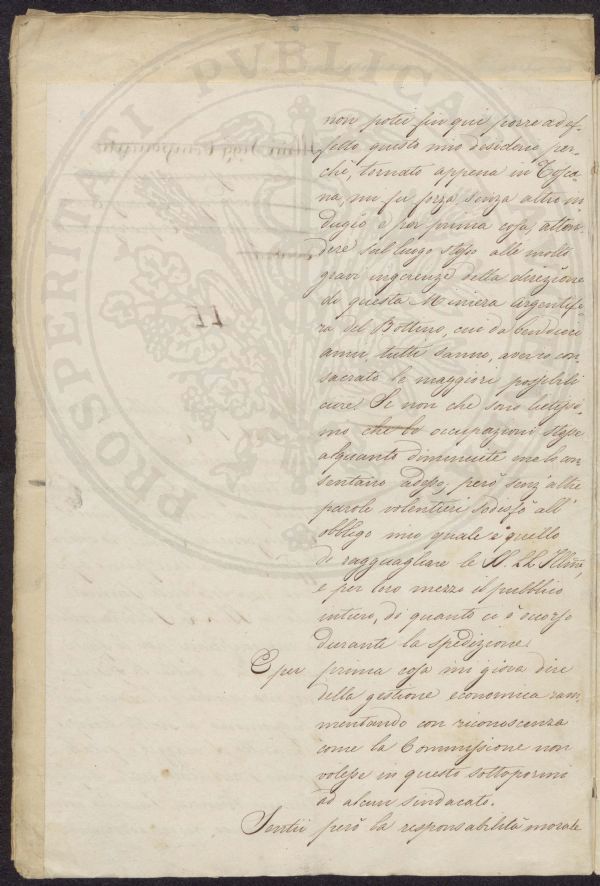 PROSPERITATI PVBLICAE
non potei fin qui porre ad ef-
fetto questo mio desiderio, per-
chè, tornato appena in Tosca-
na, mi fu forza, senza altro in
dugio e per prima cosa, atten-
dere sul luogo stesso alle molte
gravi ingerenze della direzione
di questa Miniera argentife-
ra del Bottino, cui da ben dieci
anni, tutti sanno, avervi con
sacrato le maggiori possibili
cure. Se non che sono lietissi-
mo che le occupazioni stesse
alquanto diminuite me lo con
sentano adesso, però senz'altre
parole volentieri sodisfo all'
obbligo mio quale è quello
di ragguagliare le SS. LL. Illme,
e per loro mezzo il pubblico
intiero, di quanto ci è occorso
durante la spedizione.
E per prima cosa mi giova dire
della gestione economica ram-
mentando con riconoscenza
come la Commissione non
volesse in questo sottopormi
ad alcun sindacato.
Sentii però la responsabilità morale